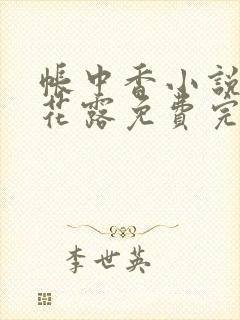 帳中香小說
花露免費完
李世英